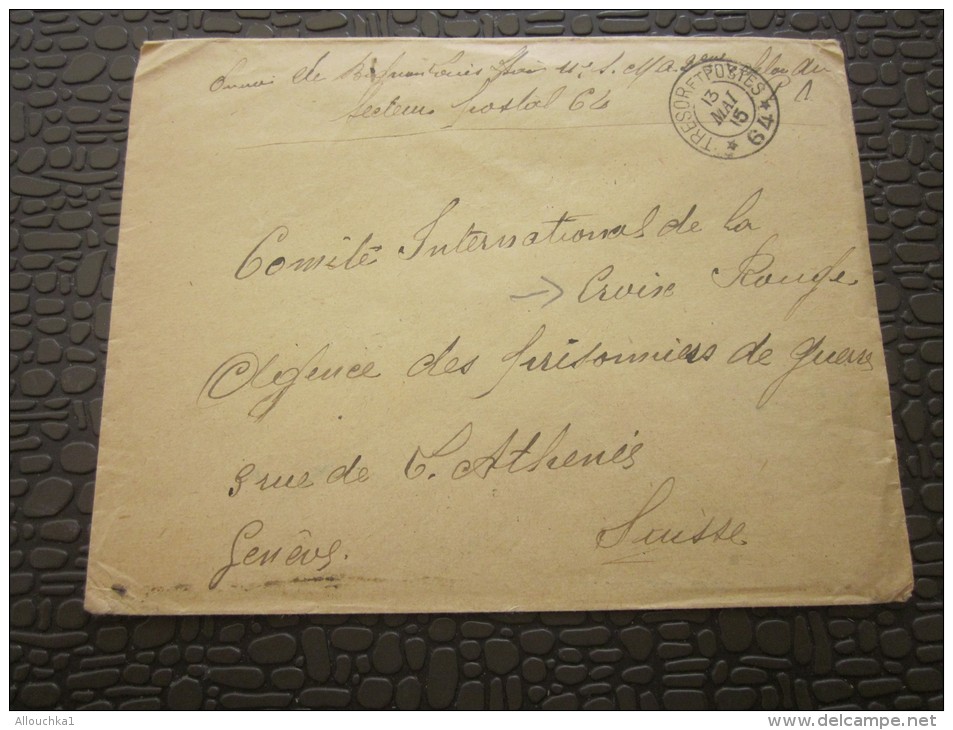 de Louis
secteur postal 64
TRESOR ET POSTES * 64 *
13
MAI
15
Comité International de la
Croix Rouge
Agence des prisonniers de guerre
3 rue de L'Athenés
Genève.
Suisse
Allouchka1
www.delcampe.net